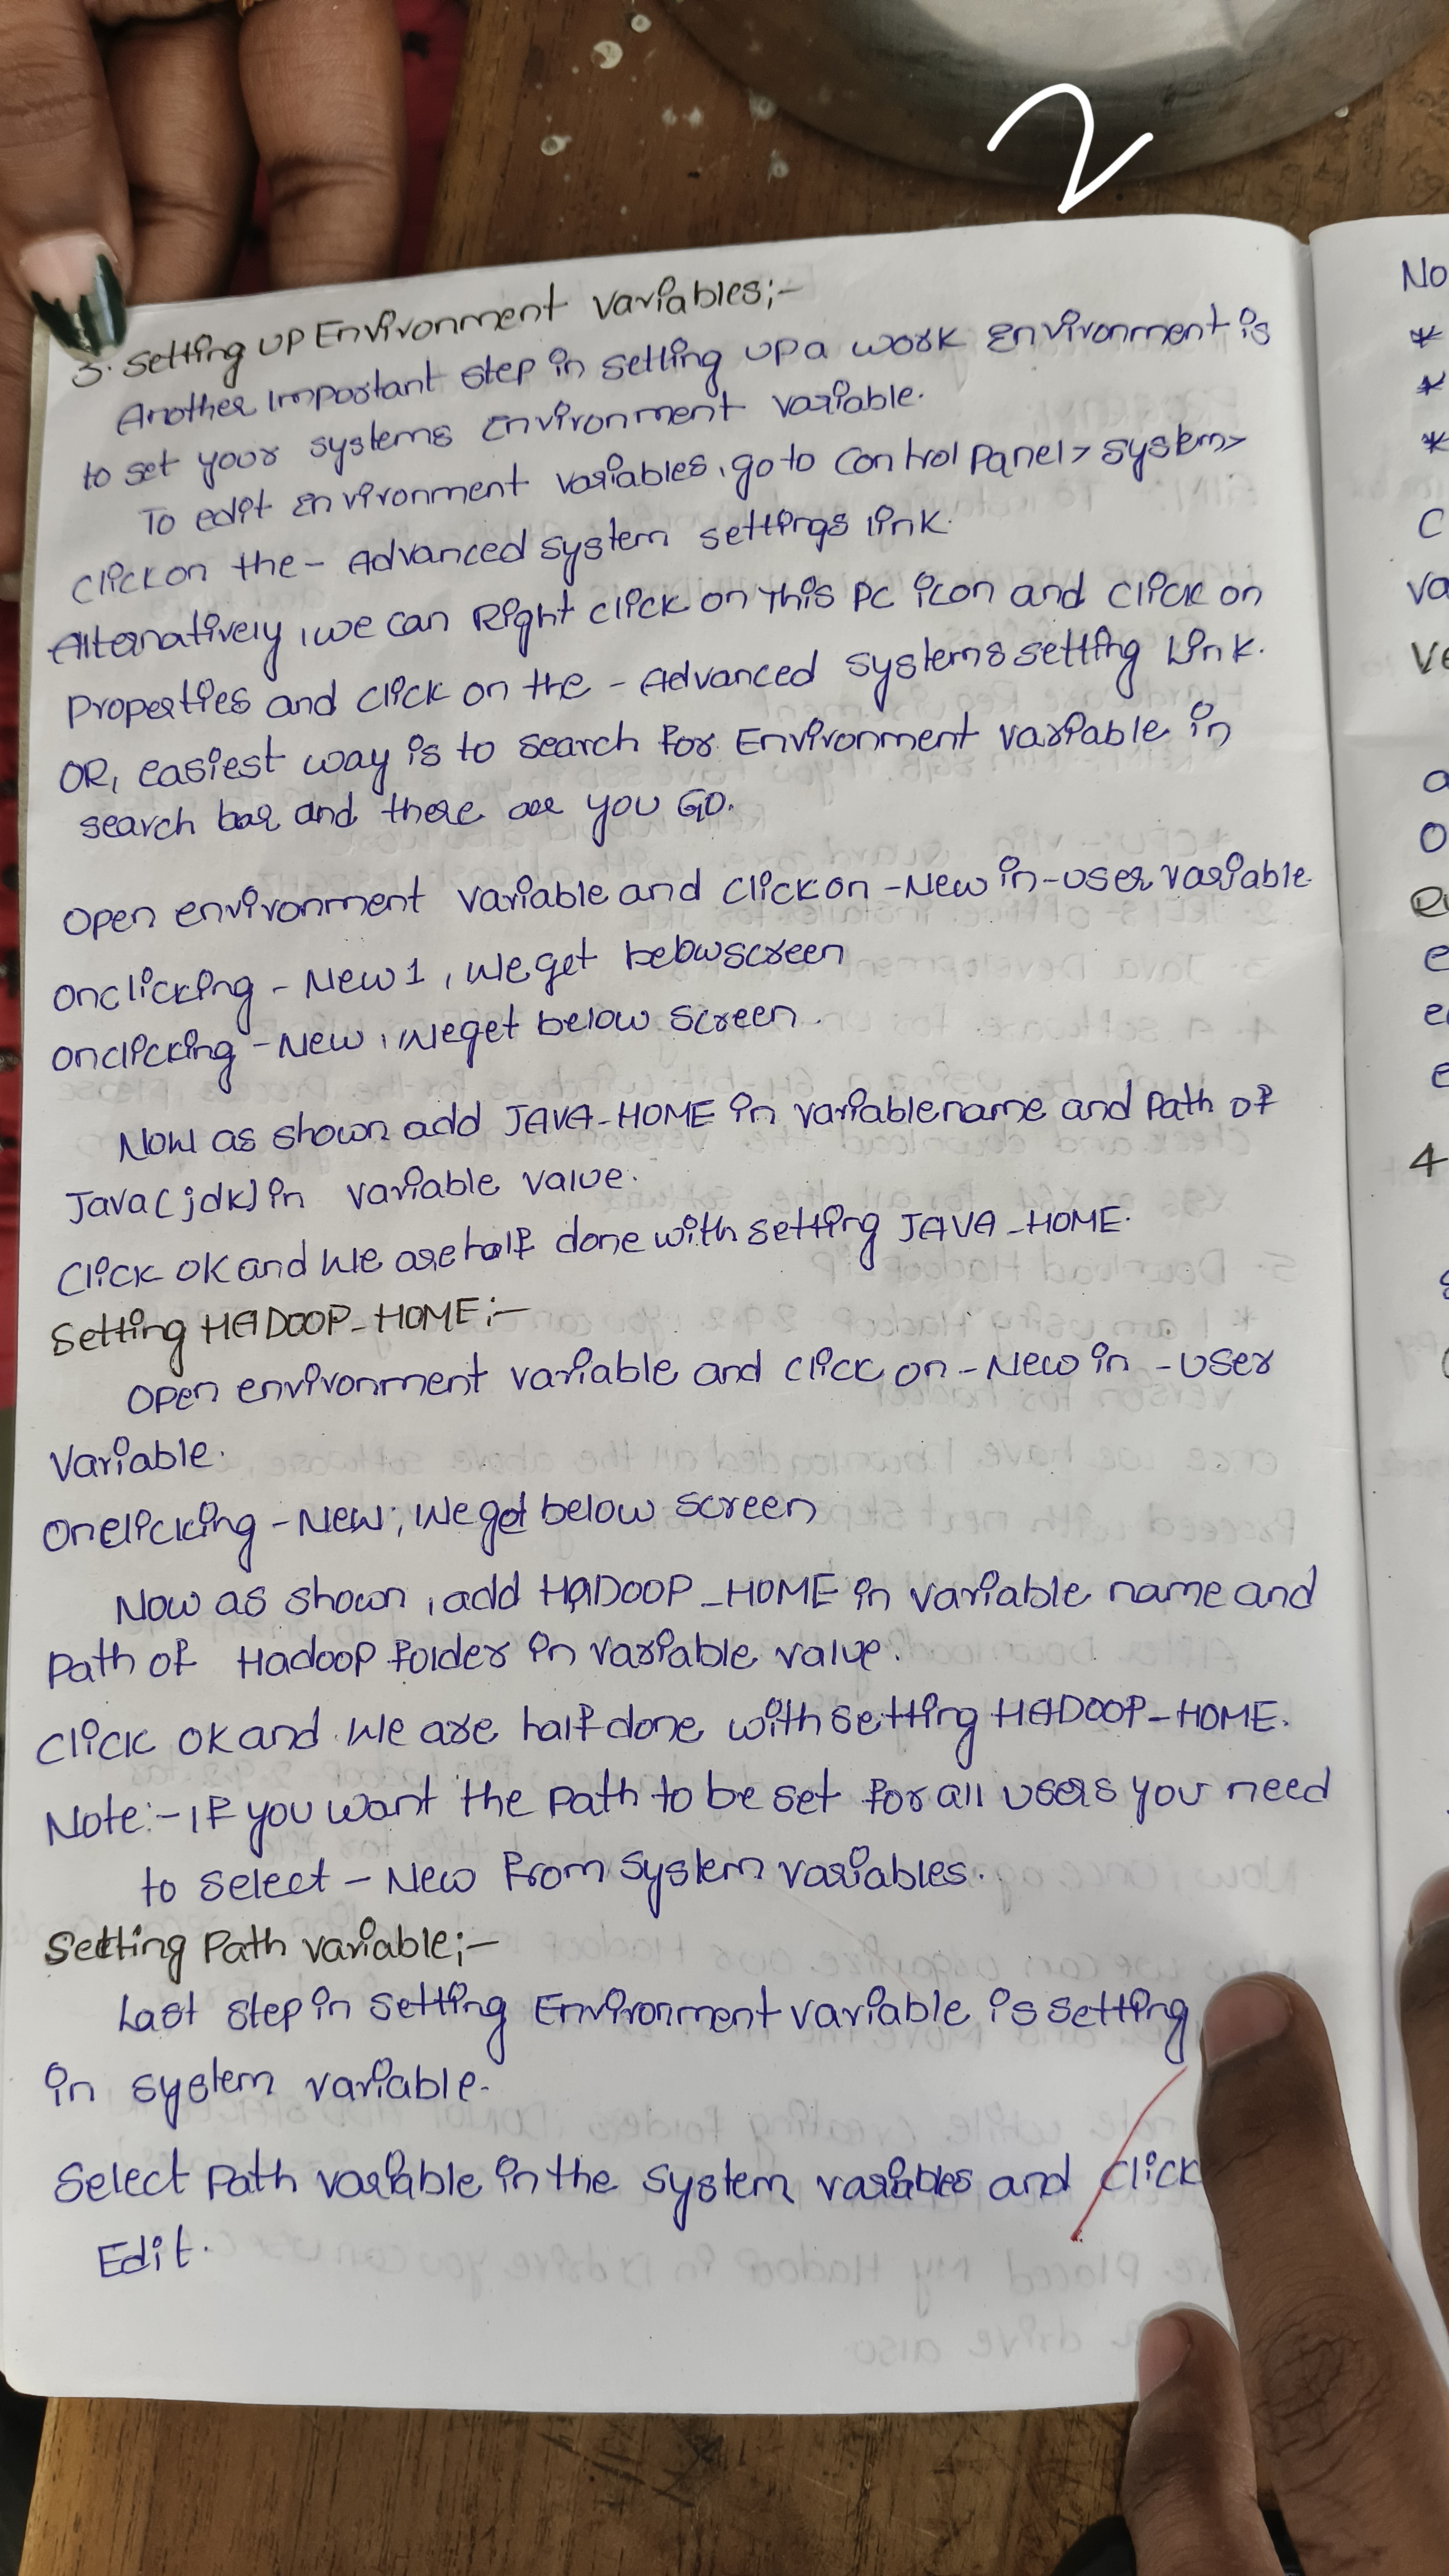 2
3. Setting up Environment Variables;-
Another Important step in setting up a work Environment is
to set your systems Environment variable.
To edit Environment variables, go to Control Panel > System >
Click on the - Advanced system settings link.
Alternatively, we can Right click on This PC icon and click on
Properties and click on the - Advanced systems setting Link.
OR, easiest way is to search for Environment variable in
search bar and there are you GO.
Open environment variable and click on - New in - user variable
onclicking - New 1, we get below screen
onclicking - New, we get below screen.
Now as shown add JAVA-HOME in variable name and path of
Java (jdk) in variable value.
Click OK and we are half done with setting JAVA_HOME.
Setting HADOOP_HOME;-
Open environment variable and click on - New in - user
variable.
Onclicking - New, we get below screen
Now as shown, add HADOOP_HOME in variable name and
path of Hadoop folder in variable value.
Click OK and we are half done with setting HADOOP-HOME.
Note:- If you want the path to be set for all users you need
to select - New from system variables.
Setting Path variable;-
Last step in setting Environment variable is setting
in system variable.
Select Path variable in the system variables and click
Edit.
No
*
*
*
C
va
ve
a
o
e
e
e
4